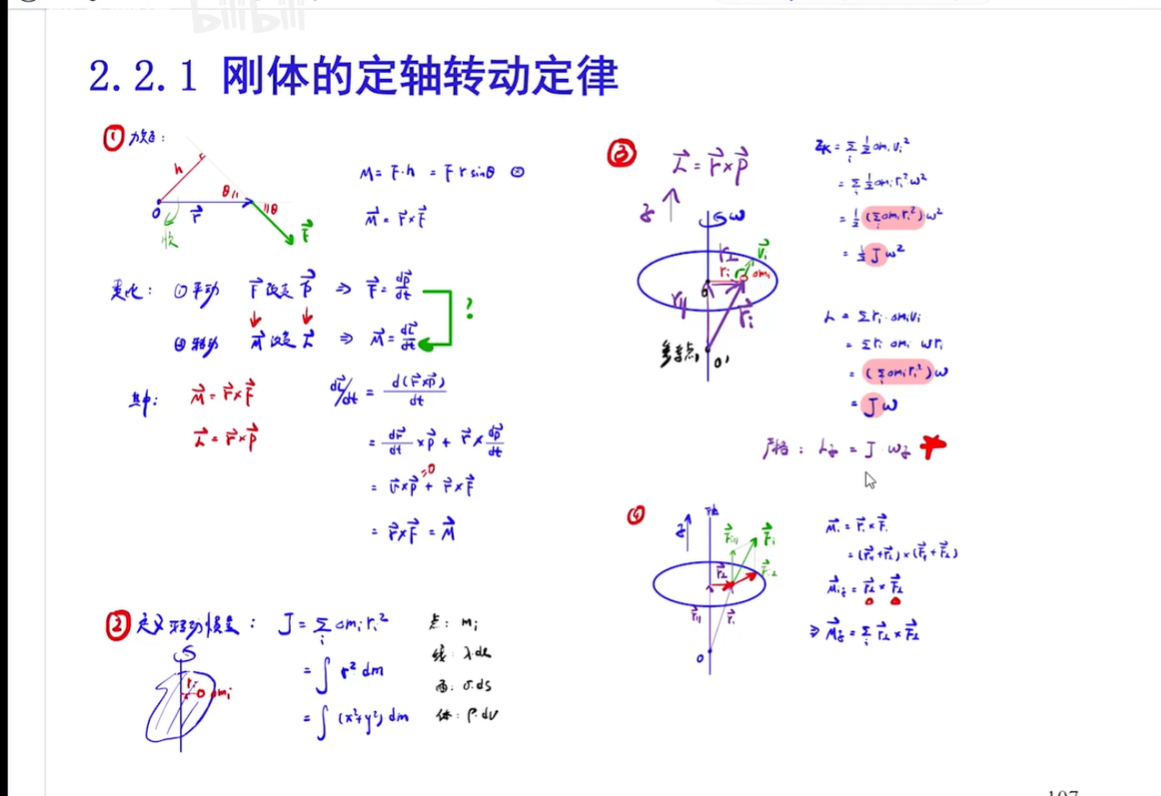 bilibili
2.2.1 刚体的定轴转动定律
① 力矩:
h
θ
θ
O
r⃗
F⃗
M = F·h = F r sinθ ⊗
M⃗ = r⃗×F⃗
变化: ①平动 F⃗ 改变 P⃗ ⇒ F⃗ = dp⃗/dt
?
②转动 M⃗ 改变 L⃗ ⇒ M⃗ = dL⃗/dt
其中: M⃗ = r⃗×F⃗
L⃗ = r⃗×p⃗
dL⃗/dt = d(r⃗×p⃗)/dt
= dr⃗/dt ×p⃗ + r⃗× dp⃗/dt
= v⃗×p⃗ + r⃗×F⃗
=0
= r⃗×F⃗ = M⃗
② 定义 转动惯量: J = Σᵢ Δmᵢ rᵢ²
= ∫ r² dm
= ∫ (x²+y²) dm
点: mᵢ
线: λ·dl
面: σ·ds
体: ρ·dV
rᵢ
Δmᵢ
③ L⃗ = r⃗×p⃗
z
ω
r⊥
v⃗ᵢ
rᵢ
Δmᵢ
O
r∥
r⃗ᵢ
参考点
O'
Eₖ = Σᵢ ½ Δmᵢ vᵢ²
= Σᵢ ½ Δmᵢ rᵢ² ω²
= ½ (Σᵢ Δmᵢ rᵢ²) ω²
= ½ J ω²
L = Σ rᵢ · Δmᵢ vᵢ
= Σ rᵢ Δmᵢ ωrᵢ
= (Σᵢ Δmᵢ rᵢ²) ω
= J ω
严格: L_z = J · ω_z
④
z
F⃗ᵢ∥
F⃗ᵢ
F⃗⊥
r⃗⊥
r⃗∥
r⃗ᵢ
O
M⃗ᵢ = r⃗ᵢ×F⃗ᵢ
= (r⃗∥+r⃗⊥)×(F⃗∥+F⃗⊥)
M⃗ᵢz = r⃗⊥×F⃗⊥
⇒ M⃗z = Σᵢ r⃗⊥×F⃗⊥